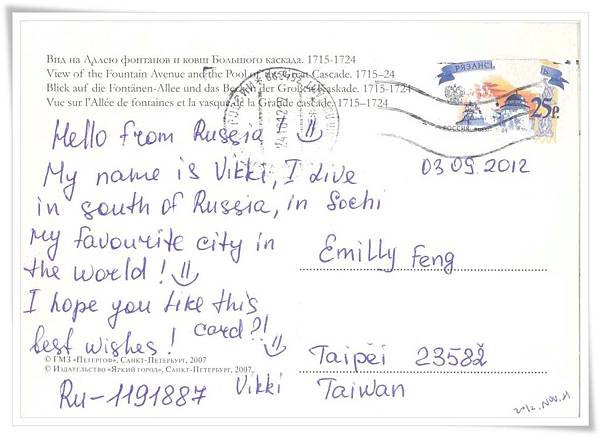 Вид на Аллею фонтанов и ковш Большого каскада. 1715-1724
View of the Fountain Avenue and the Pool of the Great Cascade. 1715–24
Blick auf die Fontänen-Allee und das Becken der Großen Kaskade. 1715–1724
Vue sur l'Allée de fontaines et la vasque de la Grande cascade. 1715–1724
РЯЗАНСК
Ь
25р.
РОССИЯ
Hello from Russia
My name is Vikki, I live
in south of Russia, in Sochi
my favourite city in
the world!
I hope you like this
card?!
best wishes!
Vikki
© ГМЗ «Петергоф», Санкт-Петербург, 2007
© Издательство «Яркий город», Санкт-Петербург, 2007
Ru-1191887
03 09 2012
Emilly Feng
Taipei 23582
Taiwan
2012.NOV.